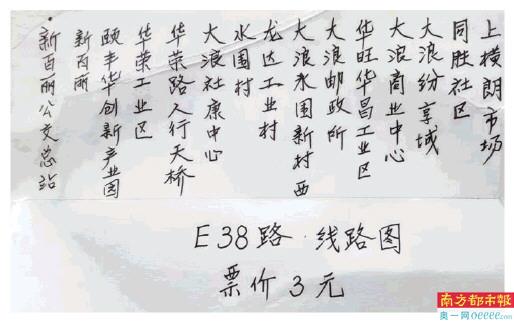 上横朗市场
同胜社区
大浪纷享城
大浪商业中心
华旺华昌工业区
大浪邮政所
大浪水围新村西
龙达工业村
水围村
大浪社康中心
华荣路人行天桥
华荣工业区
颐丰华创新产业园
新百丽
·新百丽公交总站
E38路·线路图
票价3元
南方都市报
奥一网oeeee.com